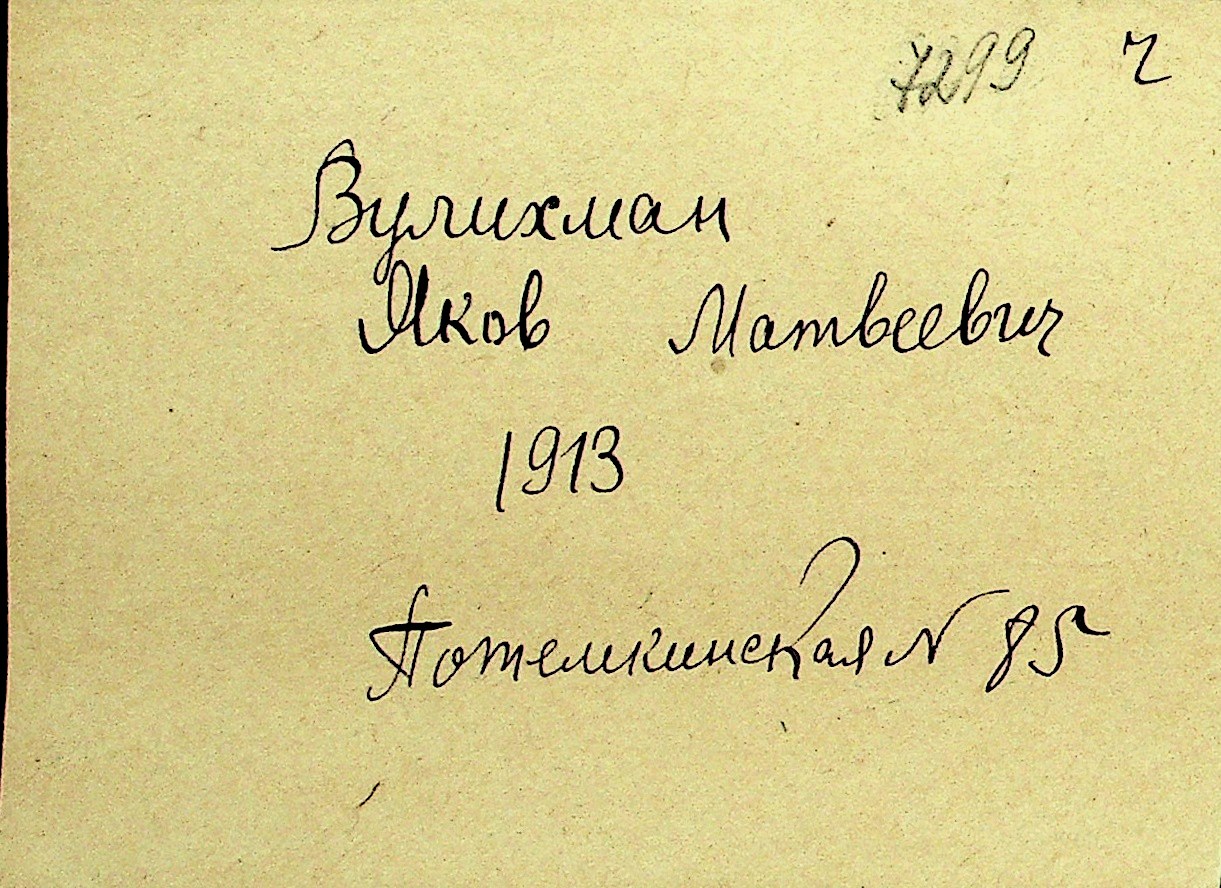 7299 ч
Вулихман
Яков Матвеевич
1913
Потемкинская N 85